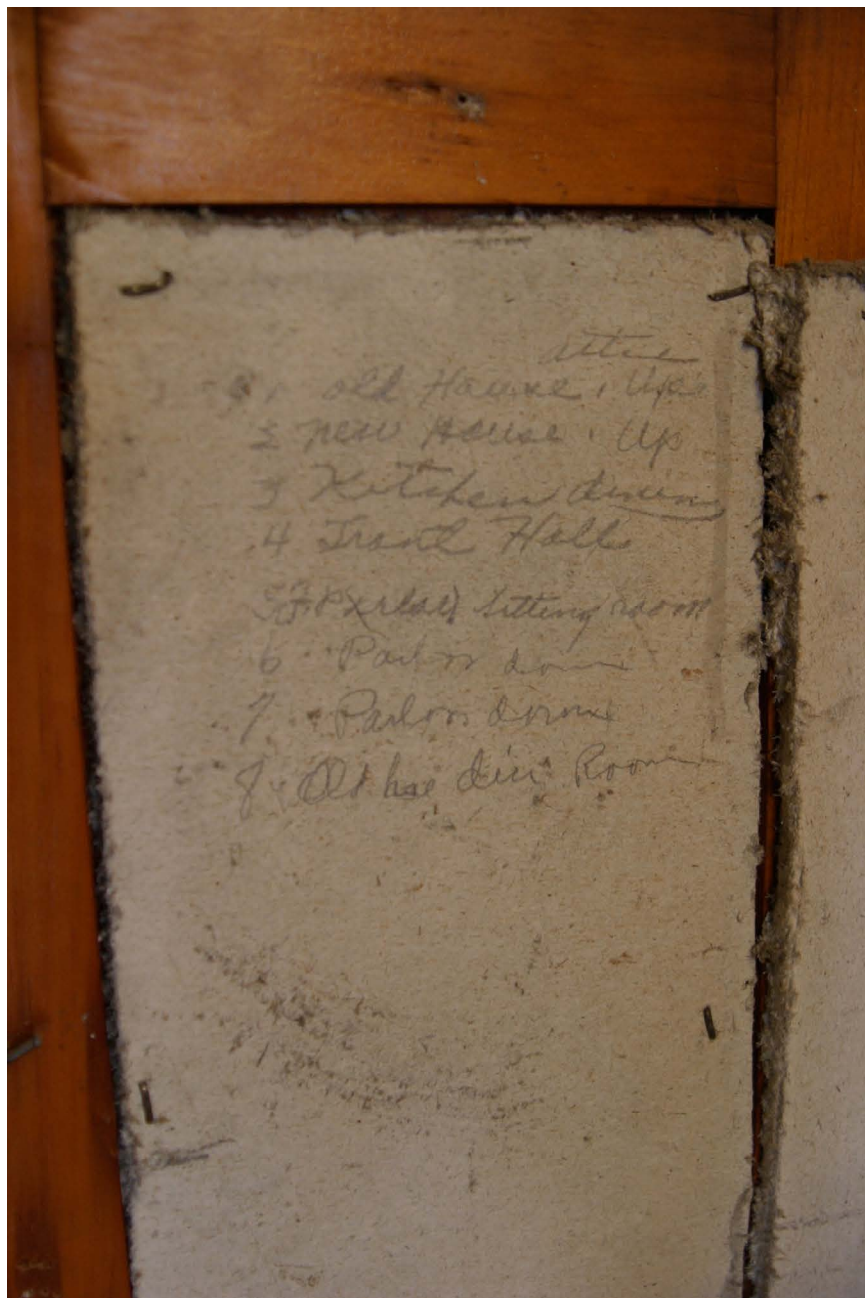 attic
1 old House, Up
2 new House, Up
3 Kitchen dinin
4 Front Hall
5 sitting room
6 Parlor down
7 Parlor down
8 Old hse din Room